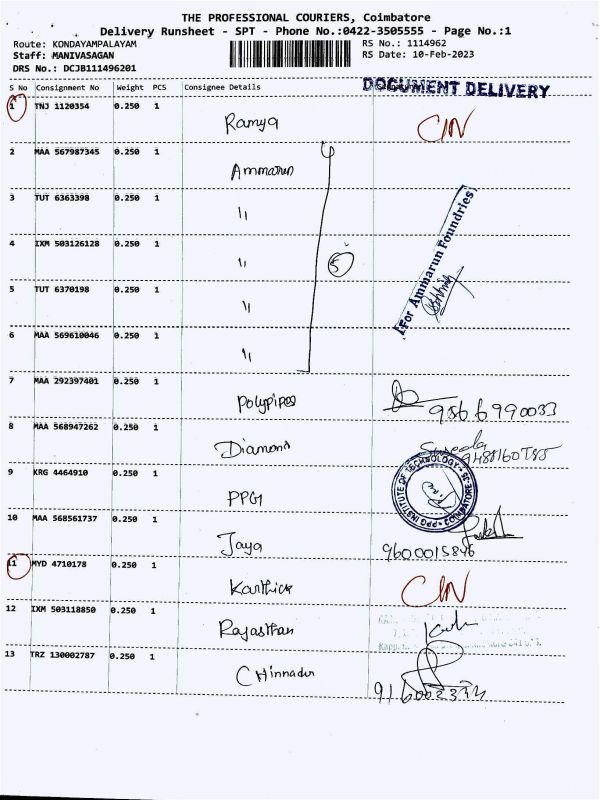 THE PROFESSIONAL COURIERS, Coimbatore
Delivery Runsheet - SPT - Phone No.:0422-3505555 - Page No.:1
Route: KONDAYAMPALAYAM
Staff: MANIVASAGAN
DRS No.: DCJB111496201
RS No.: 1114962
RS Date: 10-Feb-2023
S No Consignment No Weight PCS Consignee Details
DOCUMENT DELIVERY
1 TNJ 1120354 0.250 1
Ramya C/N
2 MAA 567987345 0.250 1
Ammarun
3 TUT 6363398 0.250 1
"
4 IXM 503126128 0.250 1
" 5
For Ammarun Foundries
5 TUT 6370198 0.250 1
"
6 MAA 569610046 0.250 1
"
7 MAA 292397401 0.250 1
Polypipes 9566990033
8 MAA 568947262 0.250 1
Diamond
9 KRG 4464910 0.250 1
PPG
PPG INSTITUTE OF TECHNOLOGY COIMBATORE-35
10 MAA 568561737 0.250 1
Jaya 9600015846
11 MYD 4710178 0.250 1
Karthick C/N
12 IXM 503118850 0.250 1
Rajasthan
13 TRZ 130002787 0.250 1
Chinnadur